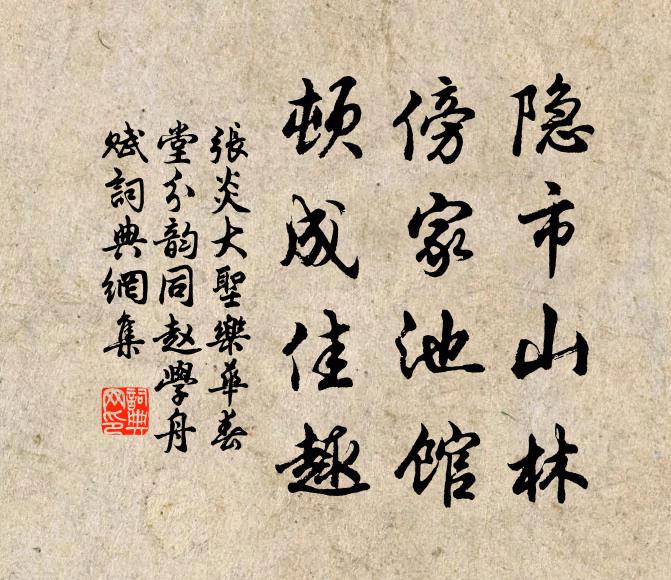 隐市山林
傍家池馆
顿成佳趣
張炎大聖樂華春
堂分韵同赵學舟
賦詞典網集
詞典网印